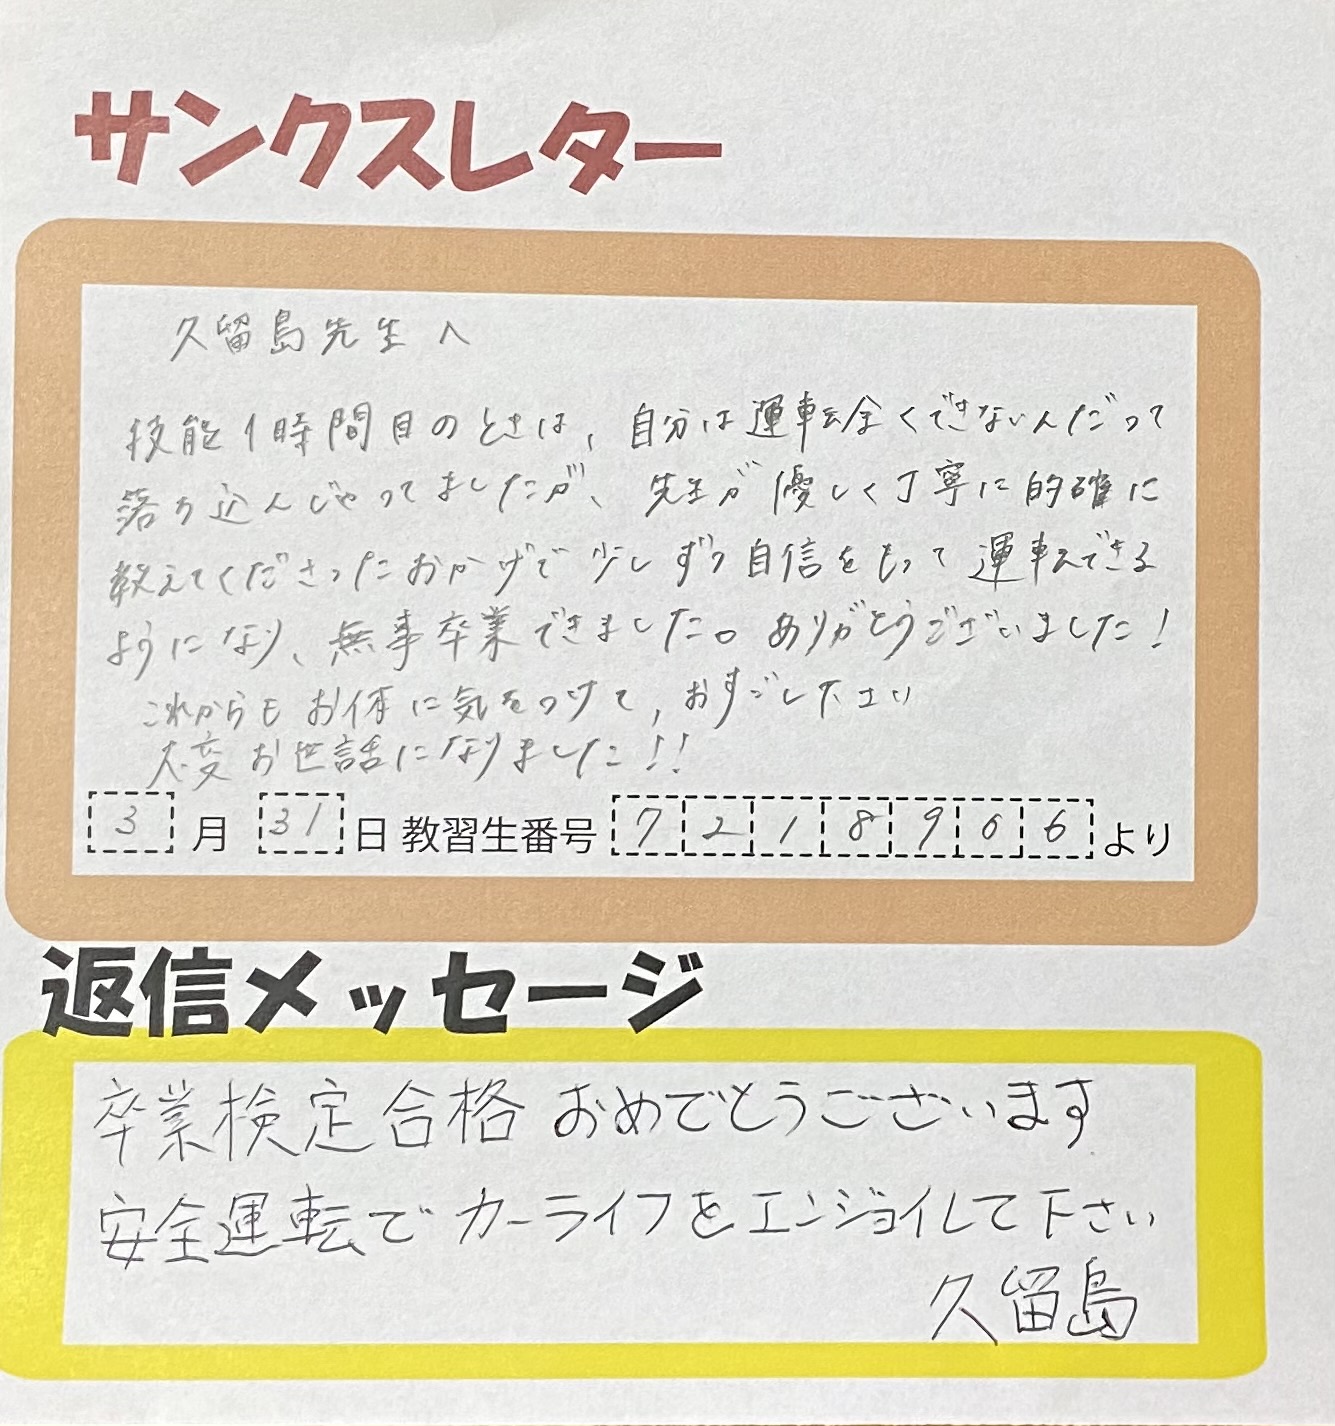 サンクスレター
久留島先生へ
技能1時間目のときは、自分は運転全くできないんだって
落ち込んじゃってましたが、先生が優しく丁寧に的確に
教えてくださったおかげで少しずつ自信をもって運転できる
ようになり、無事卒業できました。ありがとうございました!
これからもお体に気をつけて、おすごし下さい
大変お世話になりました!!
3月31日教習生番号7218906より
返信メッセージ
卒業検定合格おめでとうございます
安全運転でカーライフをエンジョイして下さい
久留島